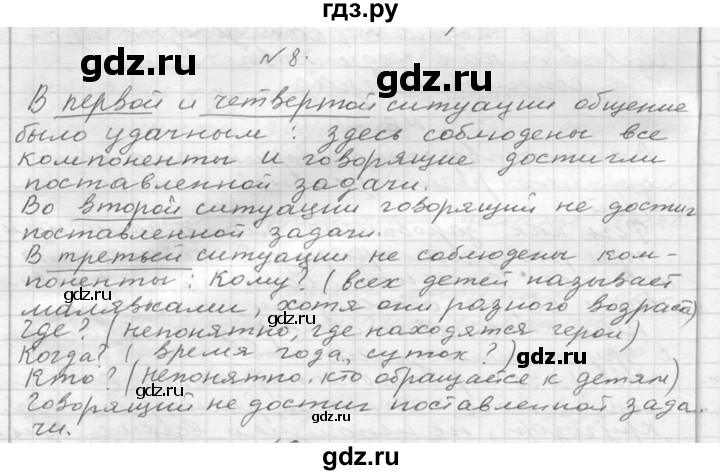 гдз.ру
gdz.ru gdz.ru
N 8.
В первой и четвертой ситуации общение
было удачным: здесь соблюдены все
компоненты и говорящие достигли
поставленной задачи.
gdz.ru
Во второй ситуации говорящий не достиг
поставленной задачи.
gdz.ru
В третьей ситуации не соблюдены ком-
поненты: Кому? (всех детей называет
gdz.ru gdz.ru
малявками, хотя они разного возраста)
Где? (непонятно, где находятся герои)
Когда? (время года, суток?)
gdz.ru
Кто? (непонятно, кто обращается к детям)
Говорящий не достиг поставленной зада-
чи.
gdz.ru gdz.ru